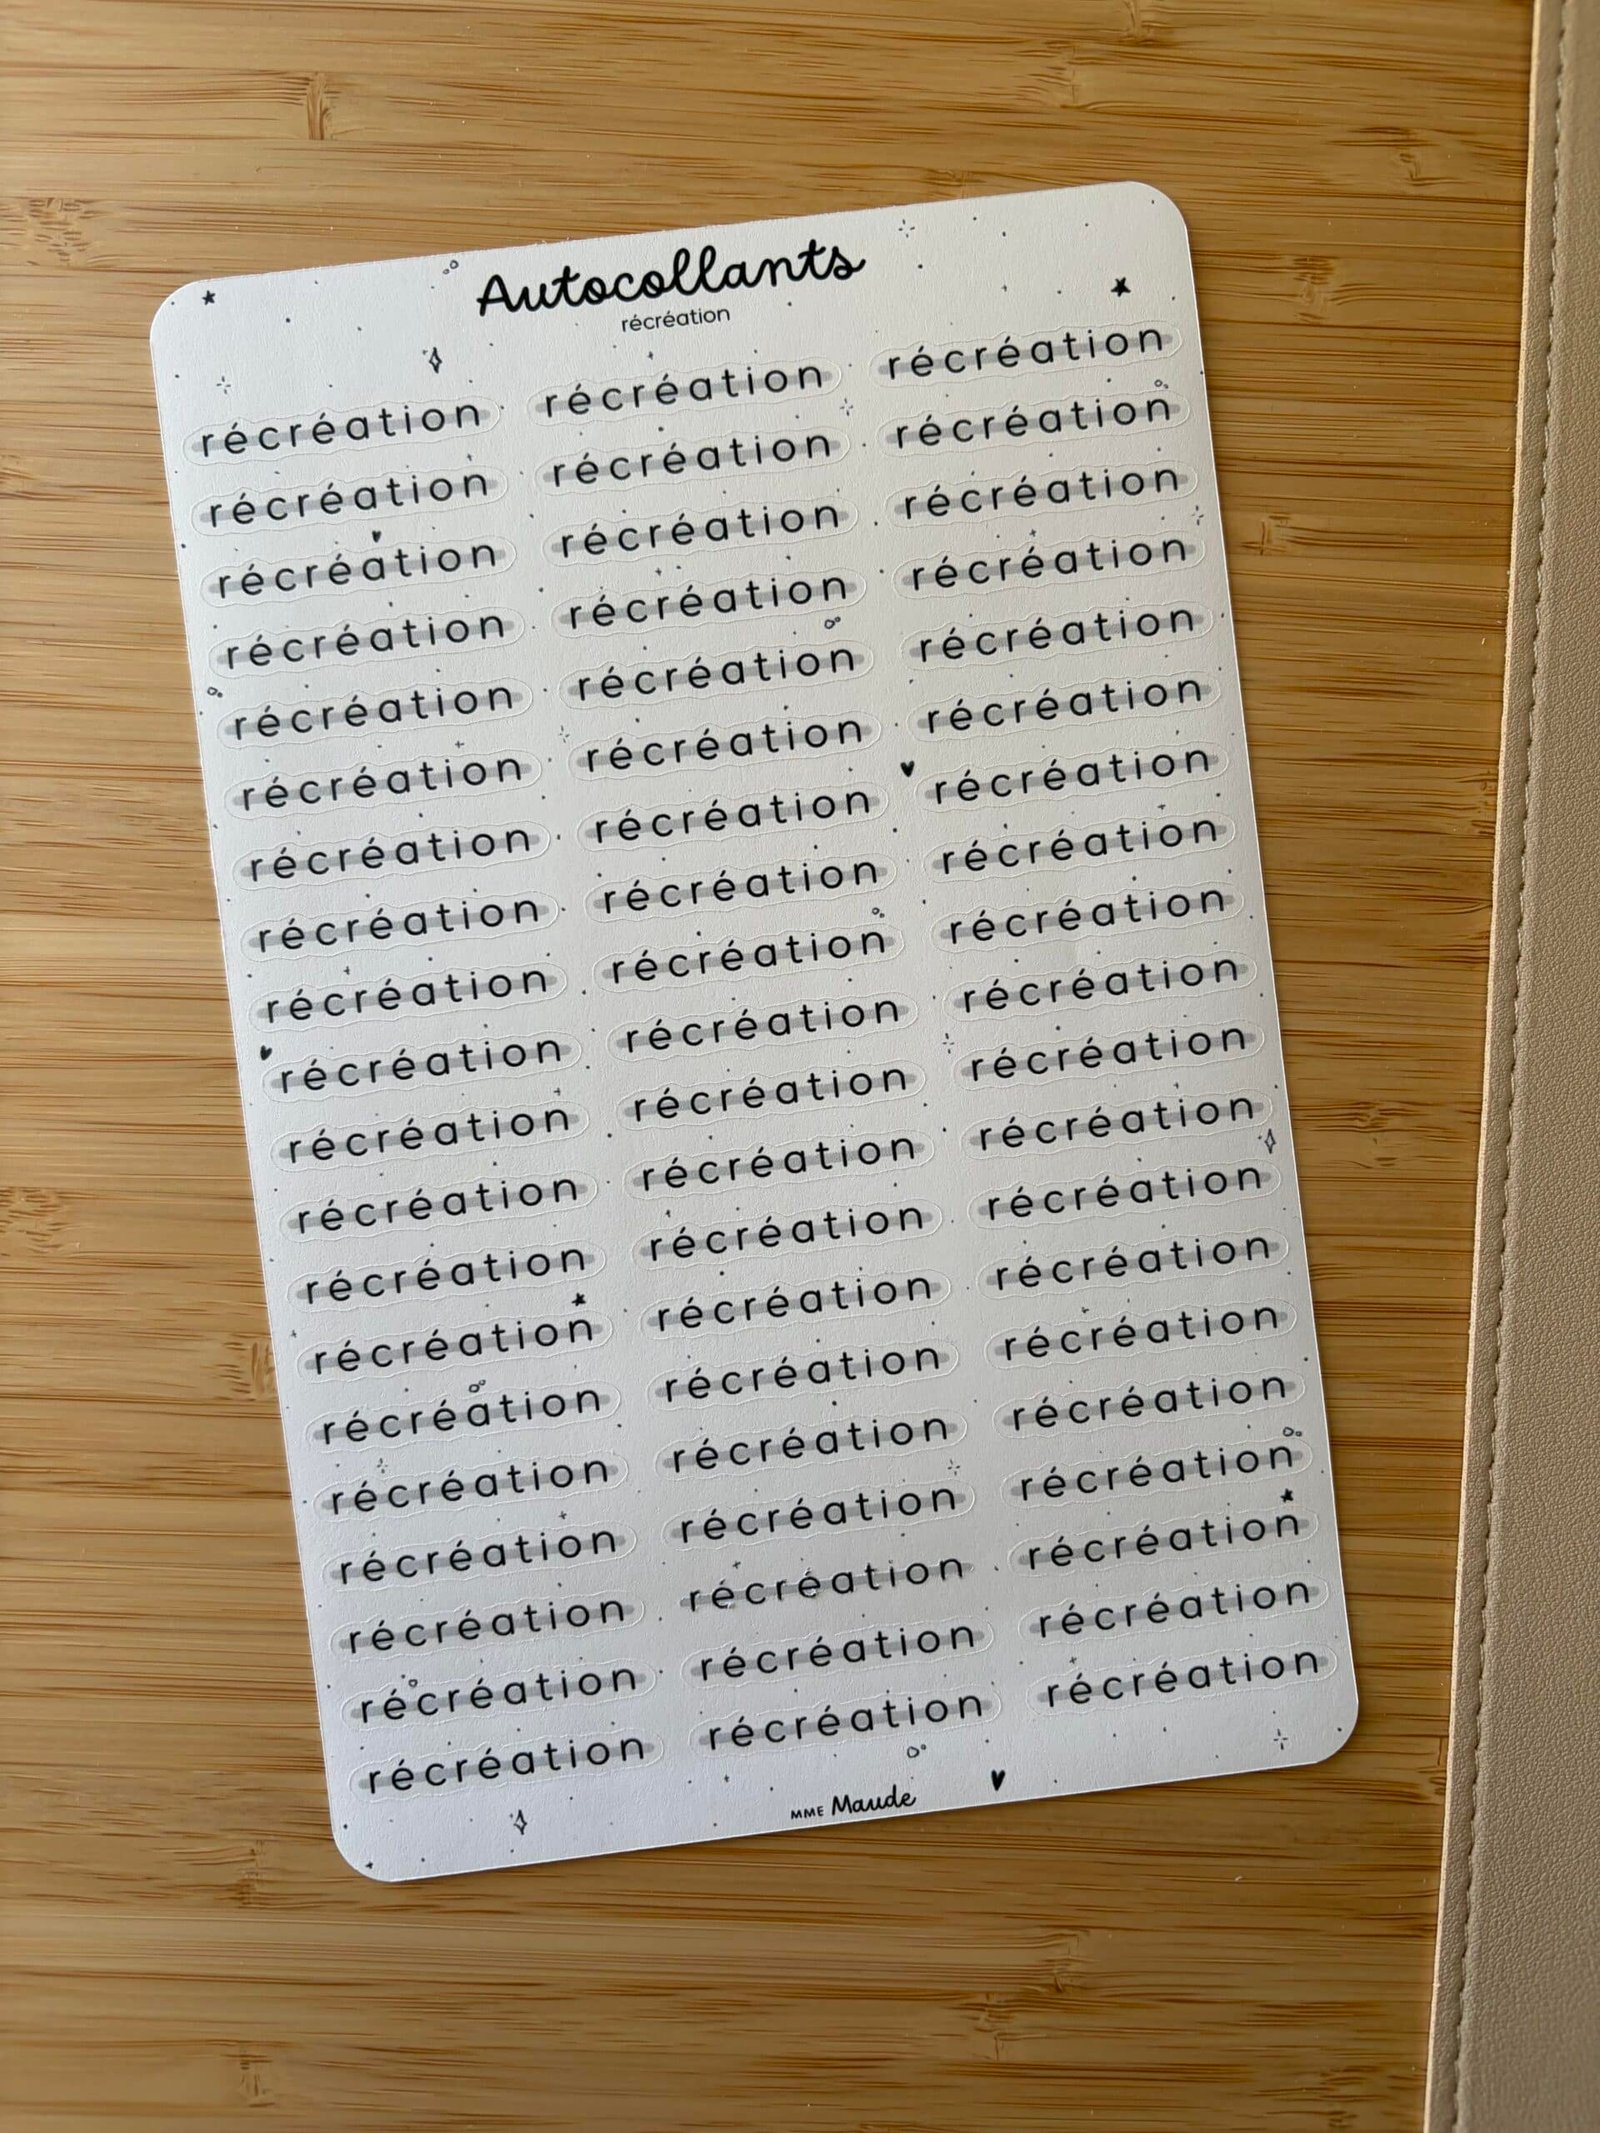 Autocollants
récréation
récréation récréation récréation
récréation récréation récréation
récréation récréation récréation
récréation récréation récréation
récréation récréation récréation
récréation récréation récréation
récréation récréation récréation
récréation récréation récréation
récréation récréation récréation
récréation récréation récréation
récréation récréation récréation
récréation récréation récréation
récréation récréation récréation
récréation récréation récréation
récréation récréation récréation
récréation récréation récréation
récréation récréation récréation
récréation récréation récréation
récréation récréation récréation
récréation récréation récréation
MME Maude